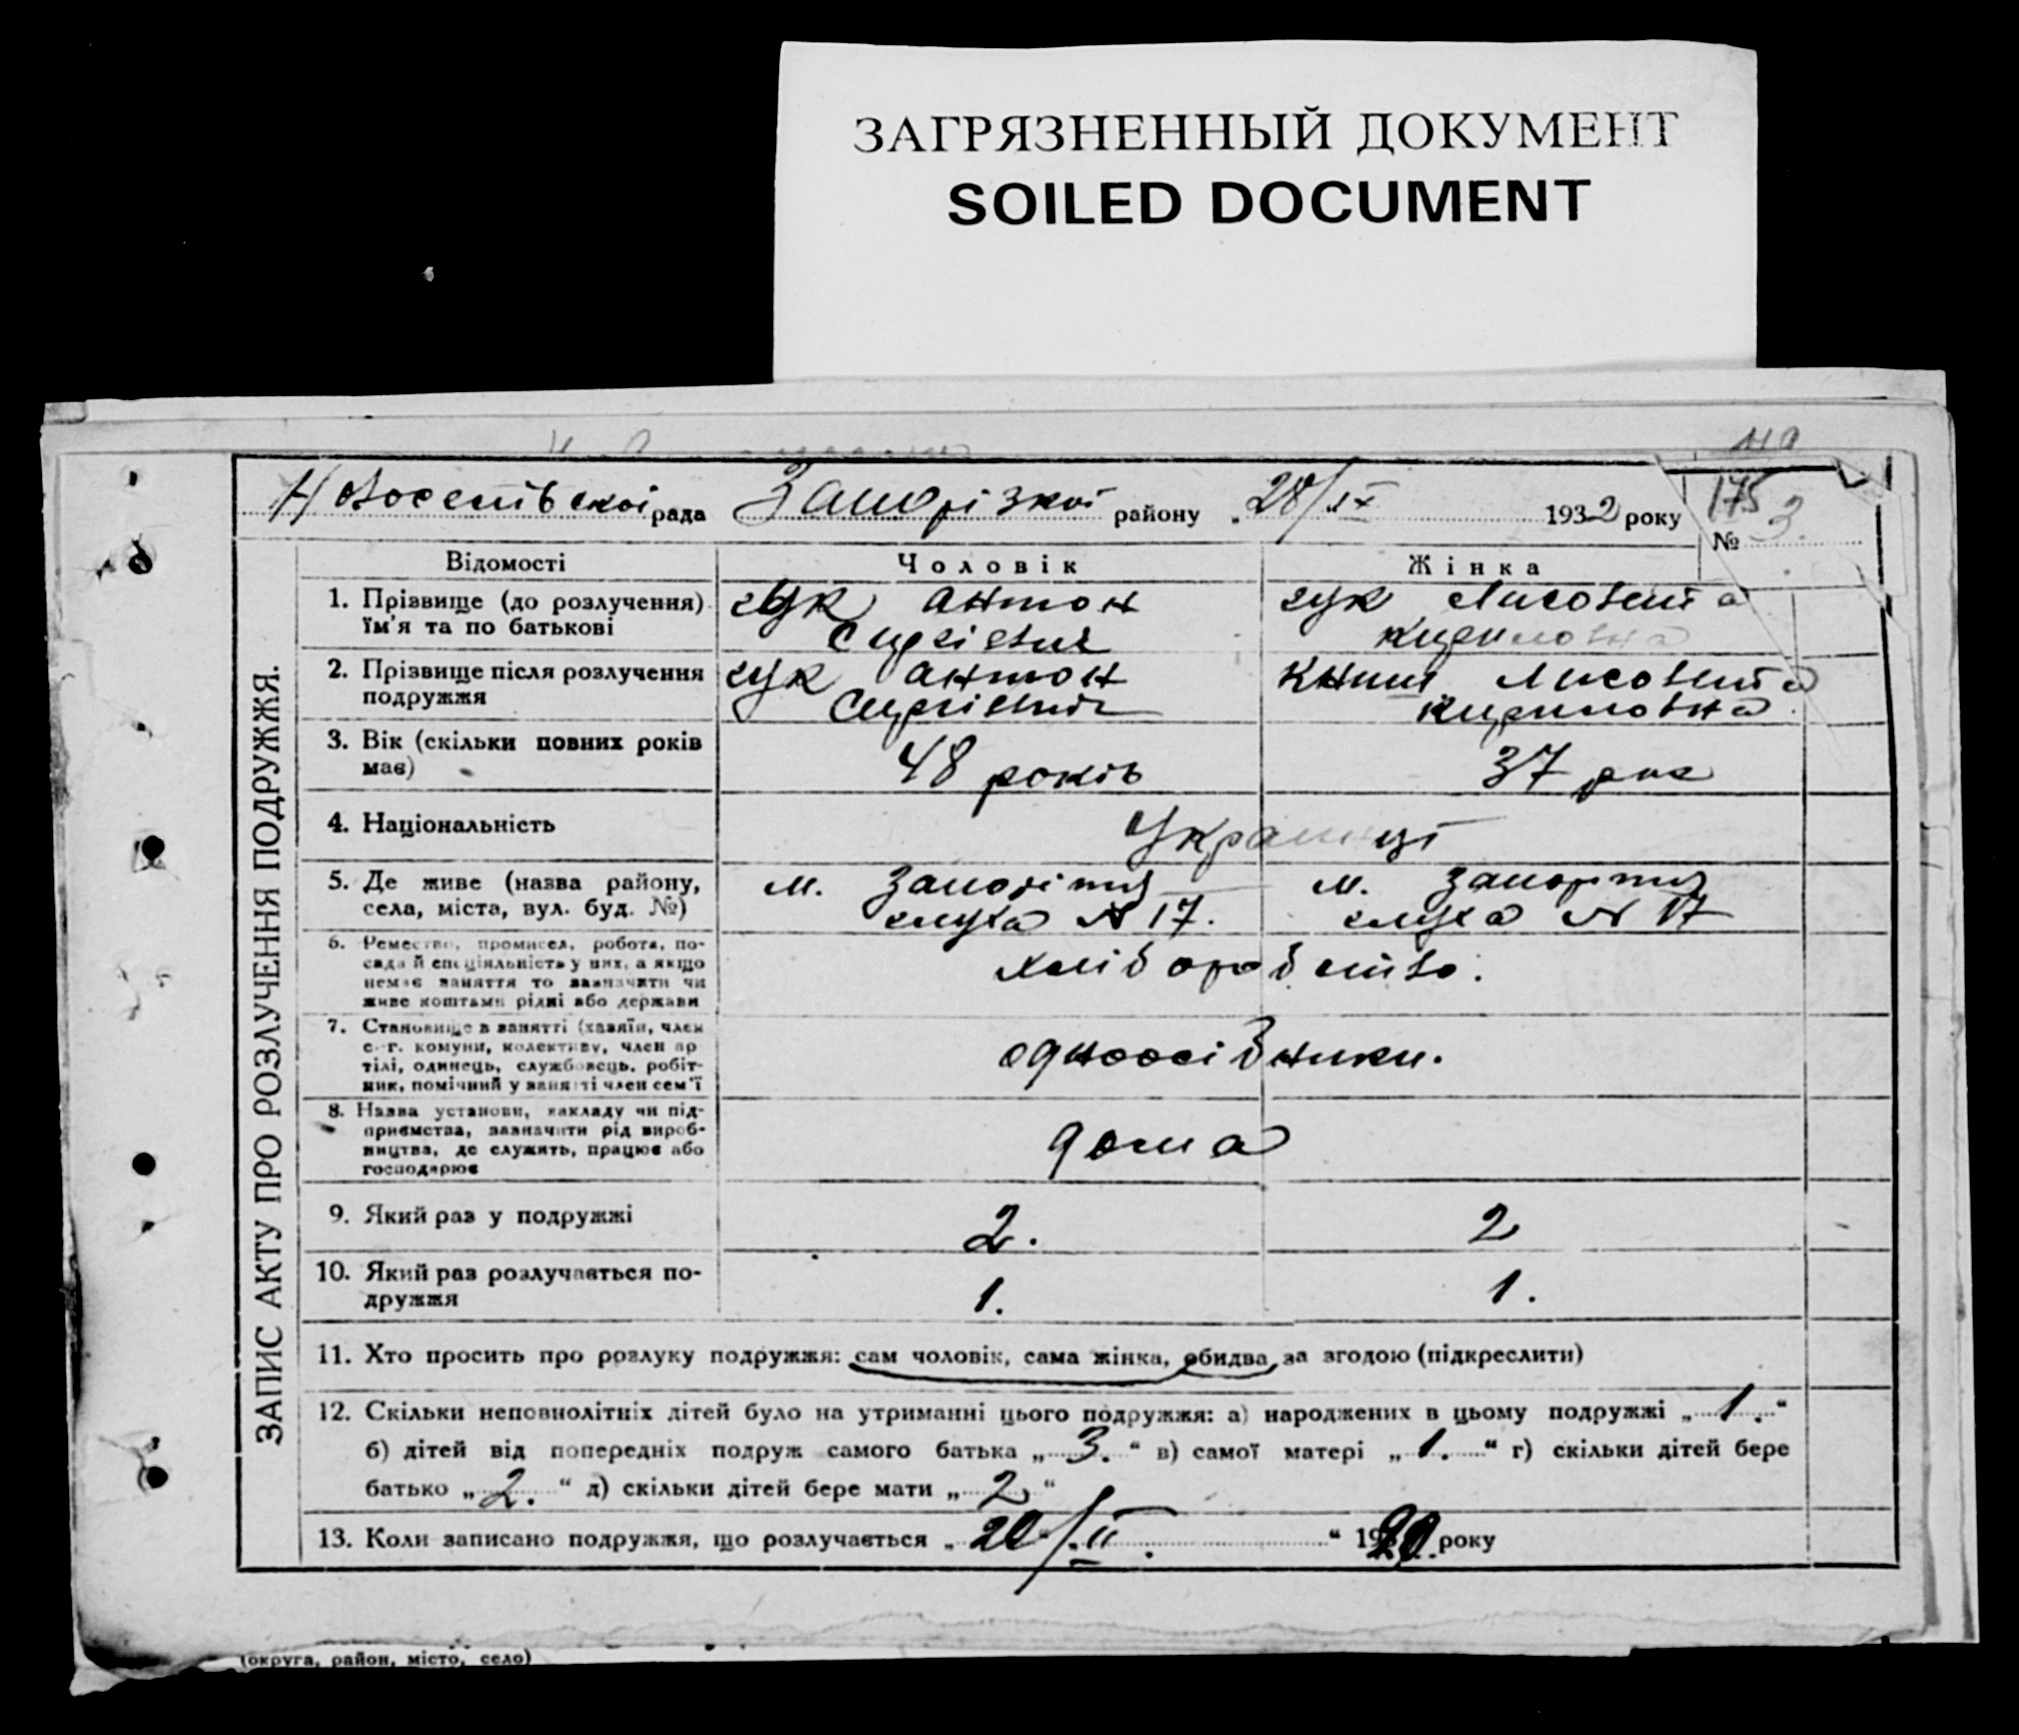 ЗАГРЯЗНЕННЫЙ ДОКУМЕНТ
SOILED DOCUMENT
рада Запорізкої району „28/ІХ 1932 року
175
№ 3.
ЗАПИС АКТУ ПРО РОЗЛУЧЕННЯ ПОДРУЖЖЯ.
Відомості Чоловік Жінка
1. Прізвище (до розлучення) їм'я та по батькові
Антон
Лисовета
Кириловна
2. Прізвище після розлучення подружжя
Антон
Книш Лисовета
Кириловна
3. Вік (скільки повних років має)
48 років 37 рик
4. Національність
Українці
5. Де живе (назва району, села, міста, вул. буд. №)
м. Запоріжжя м. Запоріжжя
N 17. N 17
6. Ремество, промисел, робота, по-
сада й спеціяльність у них, а якщо
немає заняття то зазначити чи
живе коштами рідні або держави
хліборобство.
7. Становище в занятті (хазяїн, член
с.-г. комуни, колективу, член ар
тілі, одинець, службовець, робіт-
ник, помічний у занятті член сем'ї
одноосібники.
8. Назва установи, закладу чи під-
приємства, зазначити рід вироб-
ництва, де служить, працює або
господарює
дома
9. Який раз у подружжі 2. 2
10. Який раз розлучається по-
дружжя 1. 1.
11. Хто просить про розлуку подружжя: сам чоловік, сама жінка, обидва за згодою (підкреслити)
12. Скільки неповнолітніх дітей було на утриманні цього подружжя: а) народжених в цьому подружжі „1.“
б) дітей від попередніх подруж самого батька „3.“ в) самої матері „1.“ г) скільки дітей бере
батько „2.“ д) скільки дітей бере мати „2“
13. Коли записано подружжя, що розлучається „20/ІІ.“ року
(округа, район, місто, село)